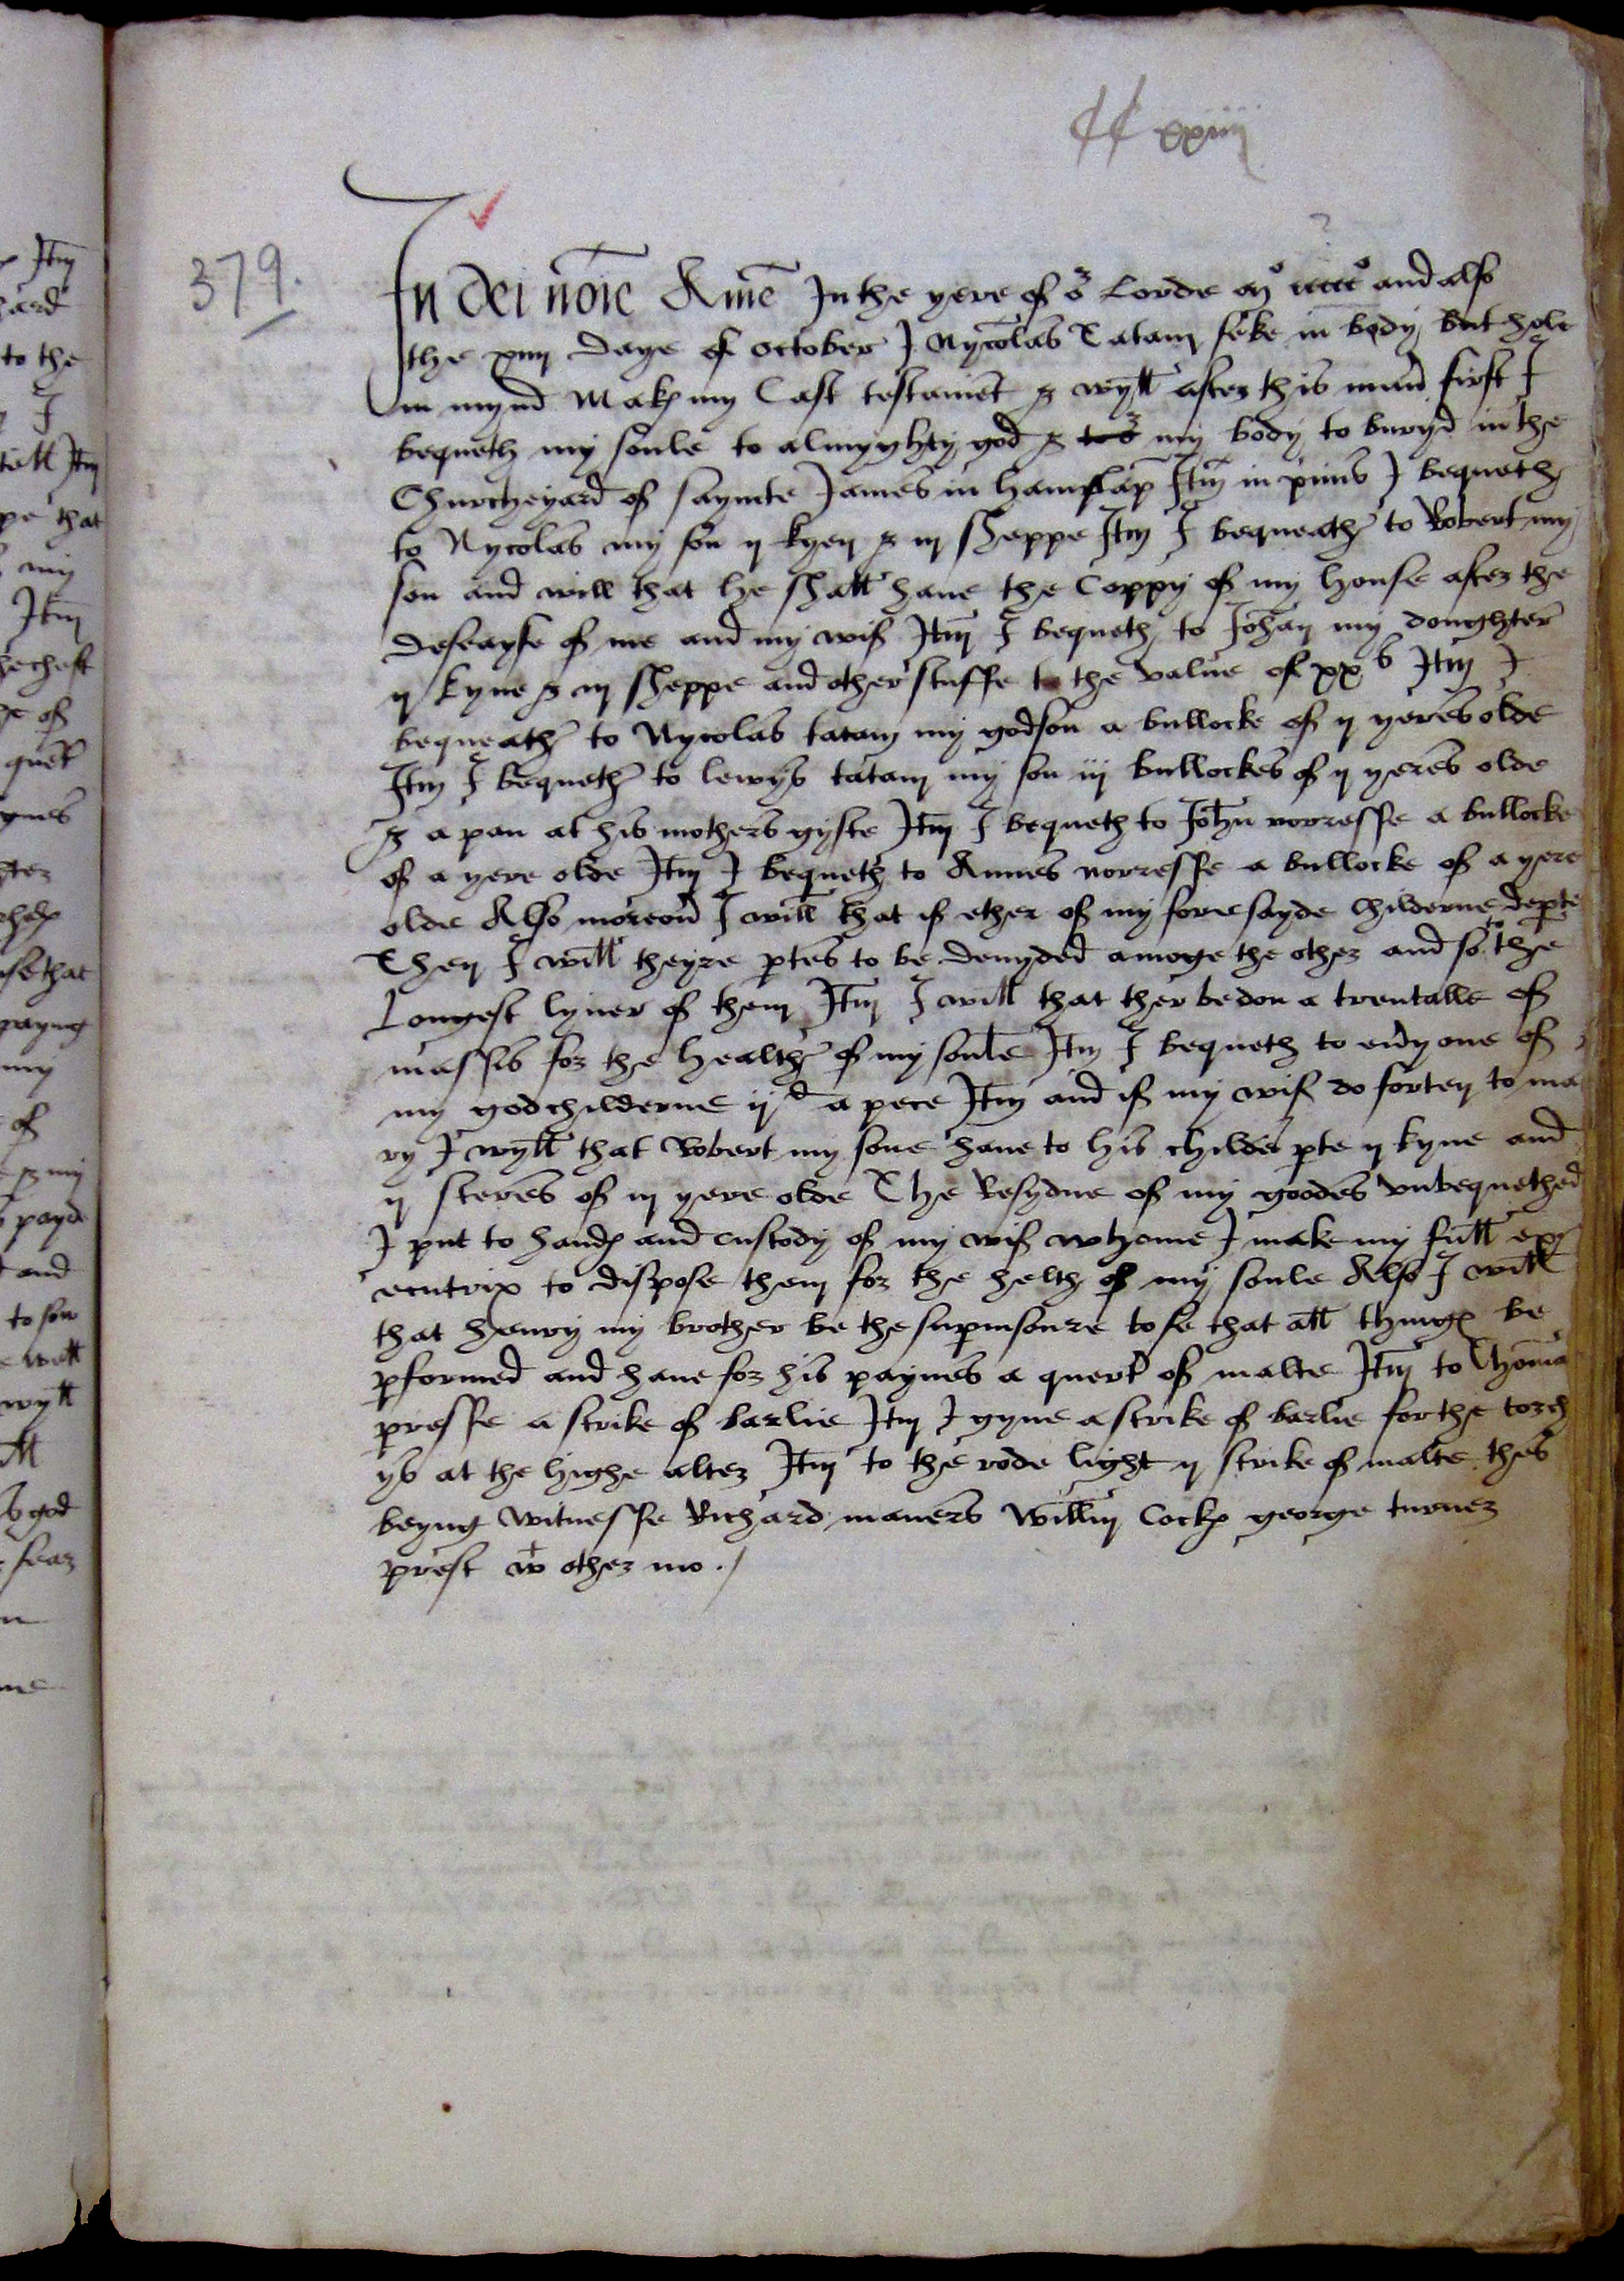 CC xxiiij
379.
In dei noīe Amē In the yere of or Lorde mo ccccco and also
the xiiij daye of october I Nycolas Tatam seke in body but hole
in mynd Make my Last testament & wyll after this man̄ first I
bequeth my soule to almyghty god & my body to buryd in the
Churcheyard of saynte James in hamslap Itm in primis I bequeth
to Nycolas my son ij kyen & iij sheppe Itm I bequeath to Robert my
son and will that he shall haue the Coppy of my house after the
deseayse of me and my wif Itm I bequeth to Johan my doughter
ij kyne & iij sheppe and other stuffe to the value of xx s Itm I
bequeath to Nycolas tatam my godson a bullocke of ij yeres olde
Itm I bequeth to lewys tatam my son iij bullockes of ij yeres olde
& a pan at his mothers gyfte Itm I bequeth to John norresse a bullocke
of a yere olde Itm I bequeth to Annes norresse a bullocke of a yere
olde Also moreou I will that if ether of my foresayde childerne depte
Then I will theyre ptes to be deuyded amoge the other and so to the
Longest lyuer of them Itm I will that ther be don a trentalle of
massis for the health of my soule Itm I bequeth to eu'y one of
my godchilderne ij d a pece Itm and if my wif do forten to ma
ry I wyll that Robert my sone haue to his childes pte ij kyne and
ij steres of iij yere olde The Resydue of my goodes vnbequethed
I put to hands and custody of my wif whome I make my full ex
ecutrix to dispose them for the helth of my soule Also I will
that henry my brother be the supuisoure to se that all things be
pformed and haue for his paynes a quert' of malte Itm to Thoma
presse a strike of barlie Itm I gyue a strike of barlie for the torch
ys at the highe alter Itm to the rode light ij strike of malte thes
beyng witnesse Richard maners Willm Cocks george turner
prest wt other mo ./